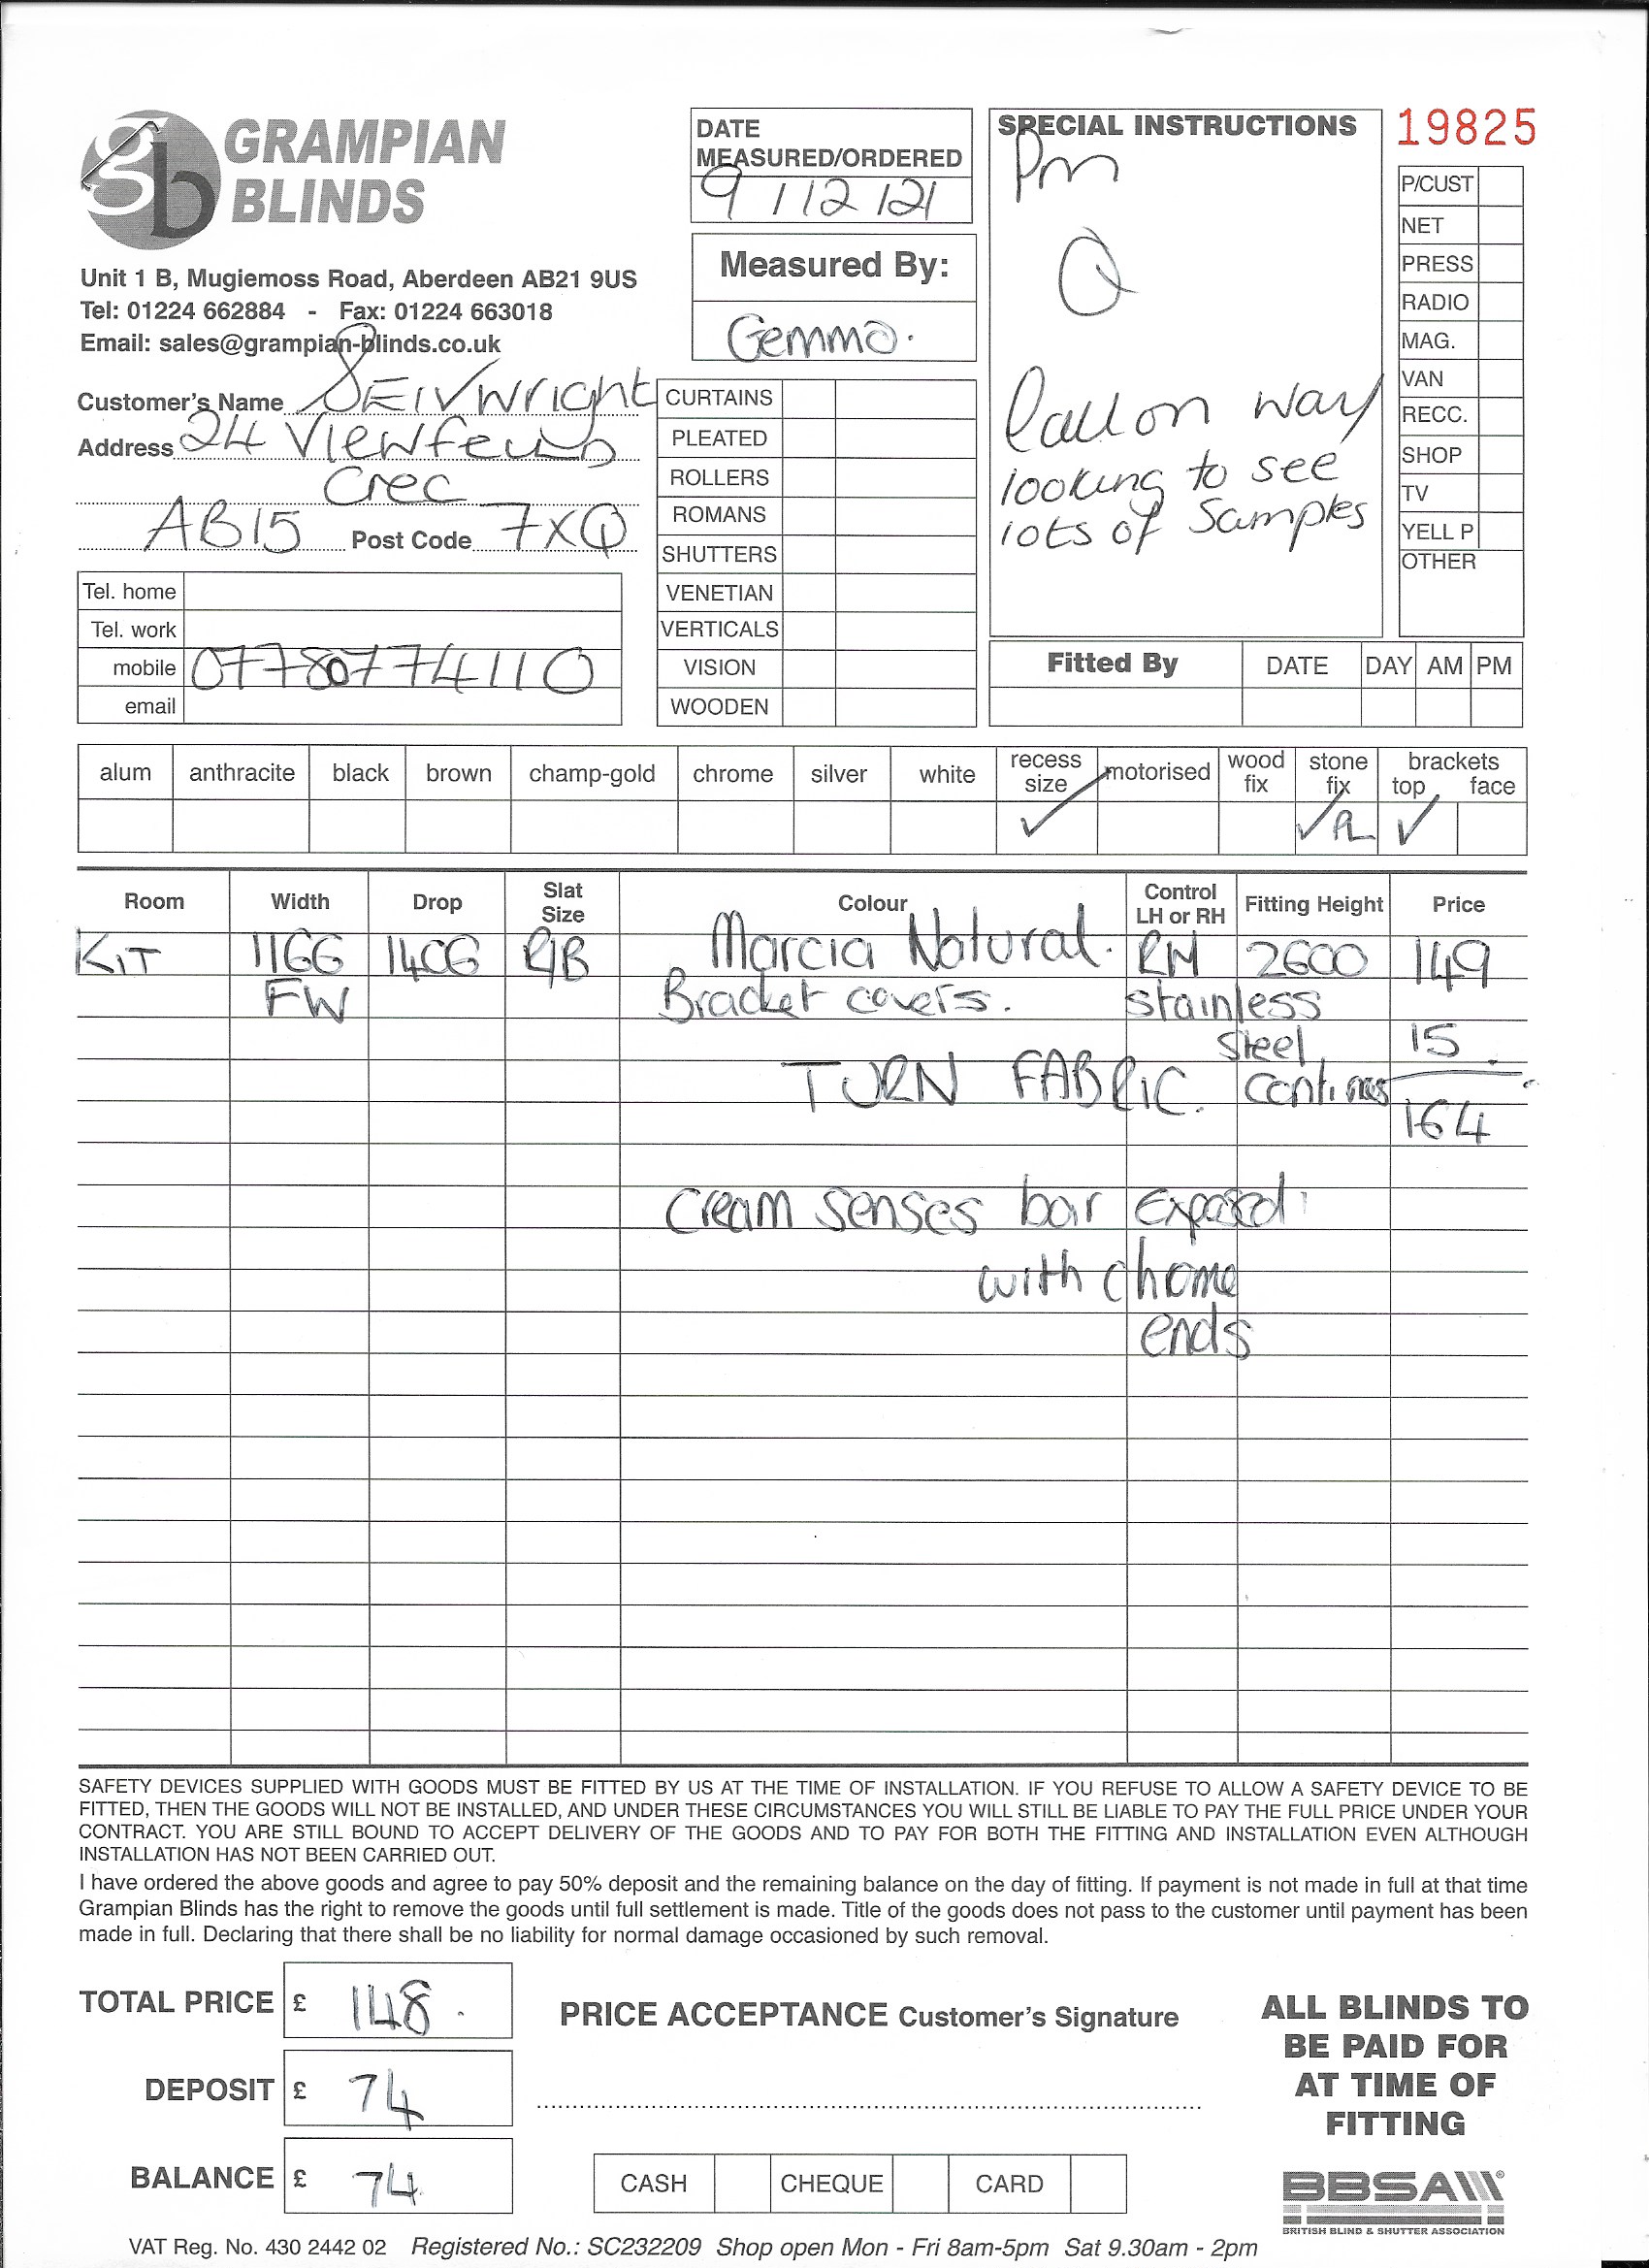 GRAMPIAN
BLINDS
Unit 1 B, Mugiemoss Road, Aberdeen AB21 9US
Tel: 01224 662884 - Fax: 01224 663018
Email: sales@grampian-blinds.co.uk
Customer's Name SEIVWright
Address 24 Viewfield
Crec
AB15 Post Code 7XQ
Tel. home
Tel. work
mobile 07780774110
email
DATE
MEASURED/ORDERED
9/12/21
Measured By:
Gemma.
CURTAINS
PLEATED
ROLLERS
ROMANS
SHUTTERS
VENETIAN
VERTICALS
VISION
WOODEN
SPECIAL INSTRUCTIONS
Pm
Q
Call on way
looking to see
lots of samples
19825
P/CUST
NET
PRESS
RADIO
MAG.
VAN
RECC.
SHOP
TV
YELL P
OTHER
Fitted By DATE DAY AM PM
alum anthracite black brown champ-gold chrome silver white recess size motorised wood fix stone fix brackets top face
✓ ✓ ✓
Room Width Drop Slat Size Colour Control LH or RH Fitting Height Price
KIT 1166 1406 R/B Marcia Natural. RH 2600 149
FW Bracket covers. stainless
steel 15
TURN FABRIC. 
164
Cream senses bar Exposed
with chome
ends
SAFETY DEVICES SUPPLIED WITH GOODS MUST BE FITTED BY US AT THE TIME OF INSTALLATION. IF YOU REFUSE TO ALLOW A SAFETY DEVICE TO BE
FITTED, THEN THE GOODS WILL NOT BE INSTALLED, AND UNDER THESE CIRCUMSTANCES YOU WILL STILL BE LIABLE TO PAY THE FULL PRICE UNDER YOUR
CONTRACT. YOU ARE STILL BOUND TO ACCEPT DELIVERY OF THE GOODS AND TO PAY FOR BOTH THE FITTING AND INSTALLATION EVEN ALTHOUGH
INSTALLATION HAS NOT BEEN CARRIED OUT.
I have ordered the above goods and agree to pay 50% deposit and the remaining balance on the day of fitting. If payment is not made in full at that time
Grampian Blinds has the right to remove the goods until full settlement is made. Title of the goods does not pass to the customer until payment has been
made in full. Declaring that there shall be no liability for normal damage occasioned by such removal.
TOTAL PRICE £ 148.
DEPOSIT £ 74
BALANCE £ 74.
PRICE ACCEPTANCE Customer's Signature
CASH CHEQUE CARD
ALL BLINDS TO
BE PAID FOR
AT TIME OF
FITTING
BBSA
BRITISH BLIND & SHUTTER ASSOCIATION
VAT Reg. No. 430 2442 02 Registered No.: SC232209 Shop open Mon - Fri 8am-5pm Sat 9.30am - 2pm